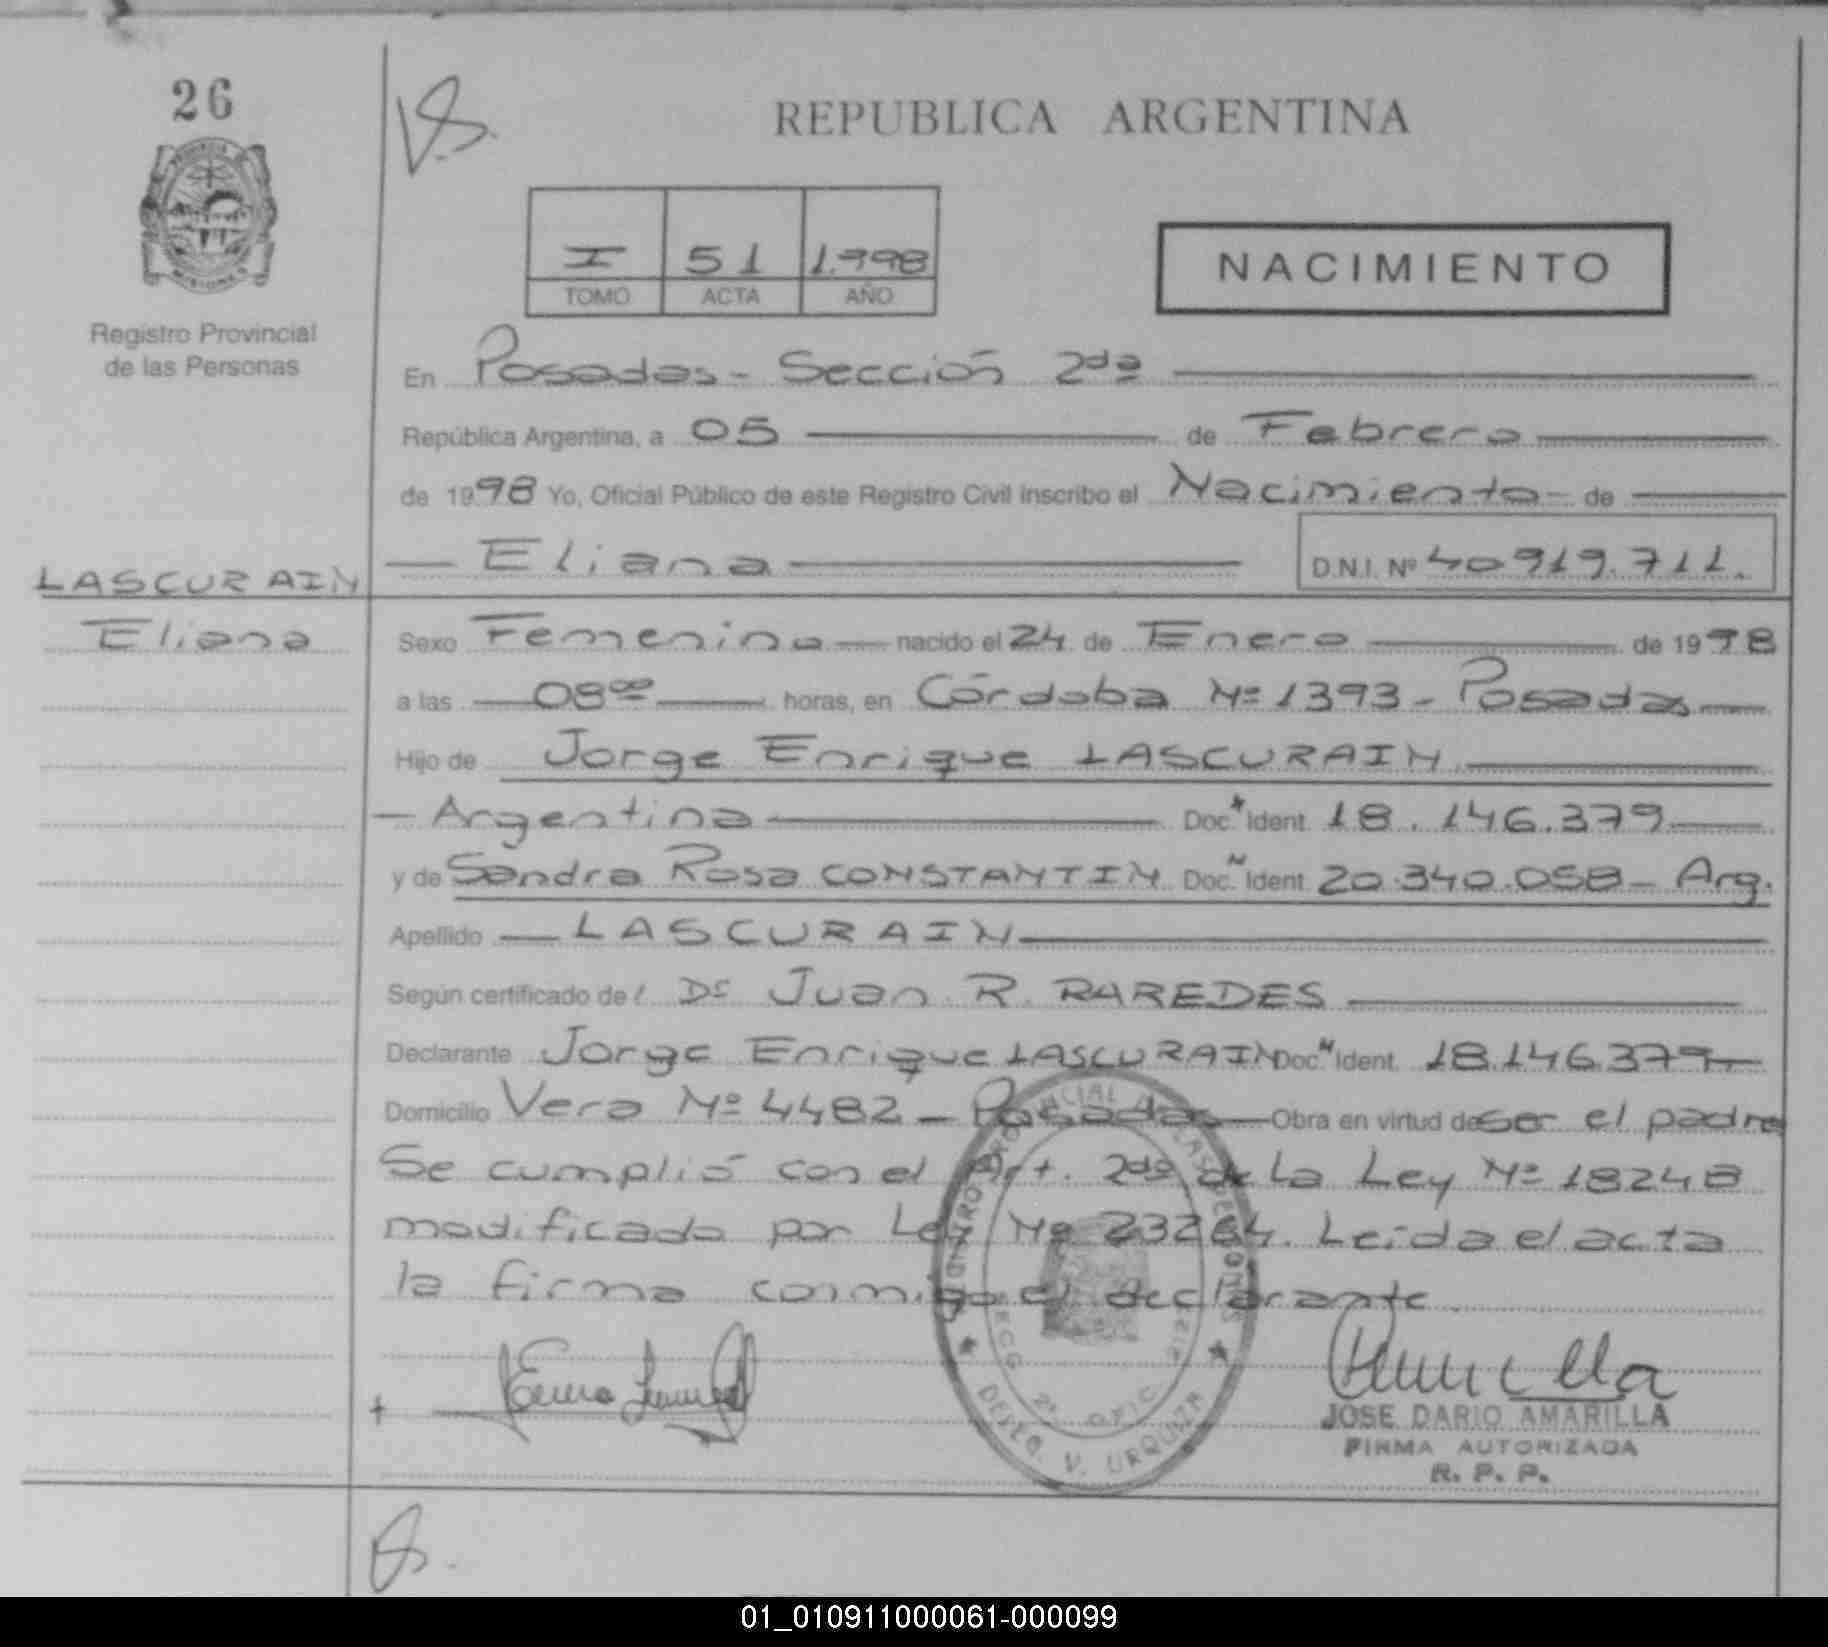 26
REPUBLICA ARGENTINA
I 51 1.998
TOMO ACTA AÑO
NACIMIENTO
Registro Provincial
de las Personas
En Posadas - Sección 2da
República Argentina, a 05 de Febrero
de 1998 Yo, Oficial Público de este Registro Civil inscribo el Nacimiento de
Eliana D.N.I. Nº 40919.711.
LASCURAIN
Eliana
Sexo Femenino nacido el 24 de Enero de 1998
a las 08ºº horas, en Córdoba Nº 1393 - Posadas
Hijo de Jorge Enrique LASCURAIN
Argentina Doc. Ident. 18.146.379
y de Sandra Rosa CONSTANTIN Doc. Ident. 20.340.058 - Arg.
Apellido LASCURAIN
Según certificado del Dr Juan R. PAREDES
Declarante Jorge Enrique LASCURAIN Doc. Ident. 18.146.379
Domicilio Vera Nº 4482 - Posadas Obra en virtud de ser el padre
Se cumplió con el Art. 2do de La Ley Nº 18248
modificada por Ley Nº 23264. Leida el acta
la firma conmigo el declarante.
JOSE DARIO AMARILLA
FIRMA AUTORIZADA
R. P. P.
REGISTRO PROVINCIAL DE LAS PERSONAS
DELEG. V. URQUIZA
01_010911000061-000099